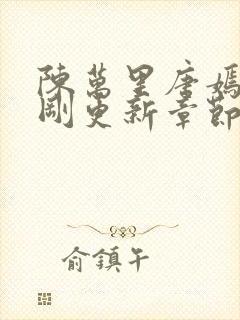 陳萬里唐嫣
剛更新章節
俞鎮午